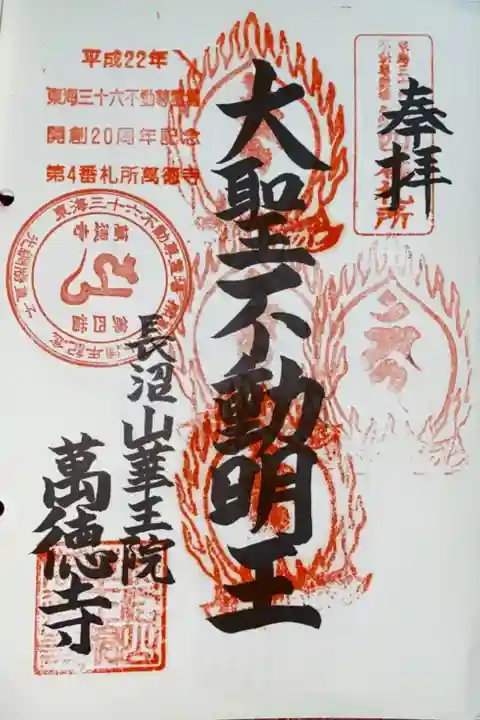 奉拝
大聖不動明王
長沼山華王院
萬徳寺
平成22年
東海三十六不動尊霊場
開創20周年記念
第4番札所萬徳寺
東海三十六不動尊霊場
萬徳寺
第四番